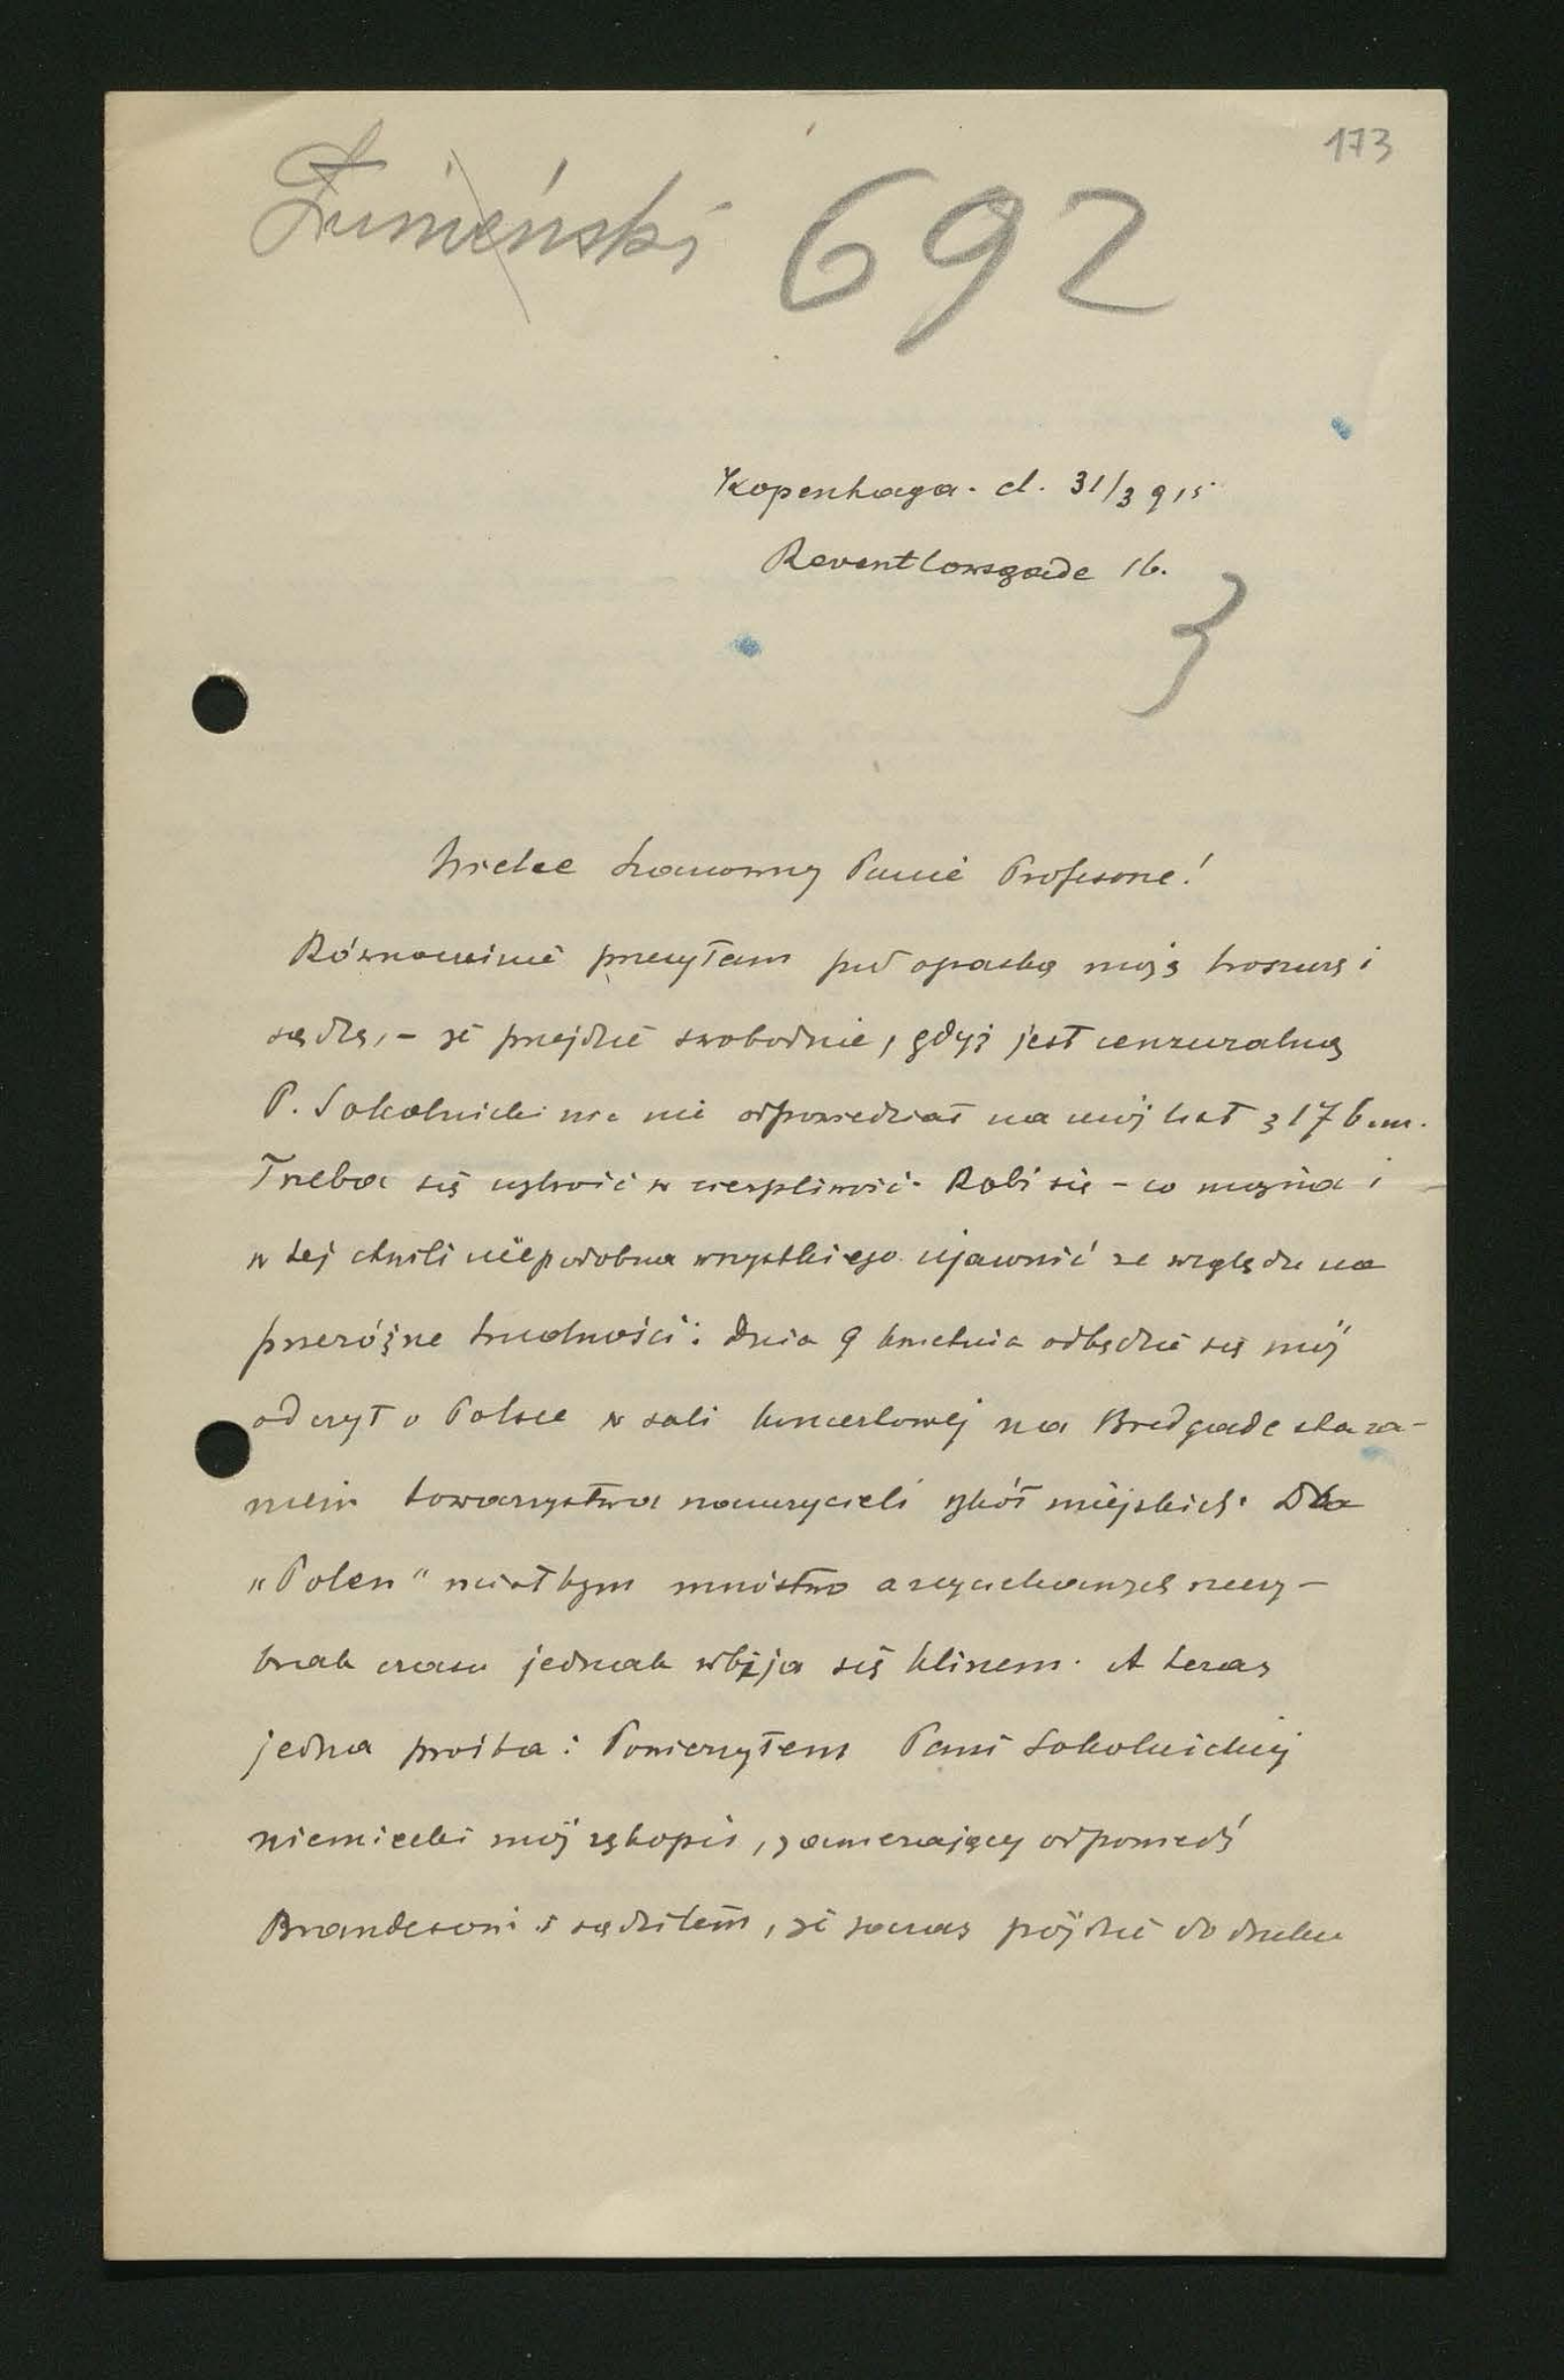 173
692
Kopenhaga. d. 31/3 915
Reventlowsgade 16.
3
Wielce Szanowny Panie Profesorze!
Równocześnie przesyłam pod opaską moją broszurę i
sądzę, – że przejdzie swobodnie, gdyż jest cenzuralną
P. Sokolnicki nic nie odpowiedział na mój list z 17 b.m.
Trzeba się uzbroić w cierpliwość. Robi się – co można i
w tej chwili niepodobna wszystkiego ujawnić ze względu na
przeróżne trudności. Dnia 9 kwietnia odbędzie się mój
odczyt o Polsce w sali koncertowej na Bredgade stara-
niem towarzystwa nauczycieli szkół miejskich. Dla
„Polen" miałbym mnóstwo arcyciekawych rzeczy –
brak czasu jednak wbija się klinem. A teraz
jedna prośba: Powierzyłem Pani Sokolnickiej
niemiecki mój rękopis, zawierający odpowiedź
Brandesowi i sądziłem, że zaraz pójdzie do druku